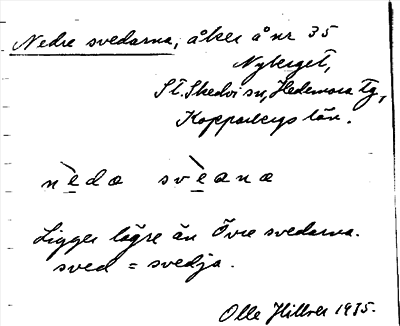 Nedre svedarna, åker å nr 35
Nyberget,
St. Skedvi sn, Hedemora tg,
Kopparbergs län.
nèdæ svèanæ
Ligger lägre än Övre svedarna.
sved = svedja.
Olle Hillver 1935.